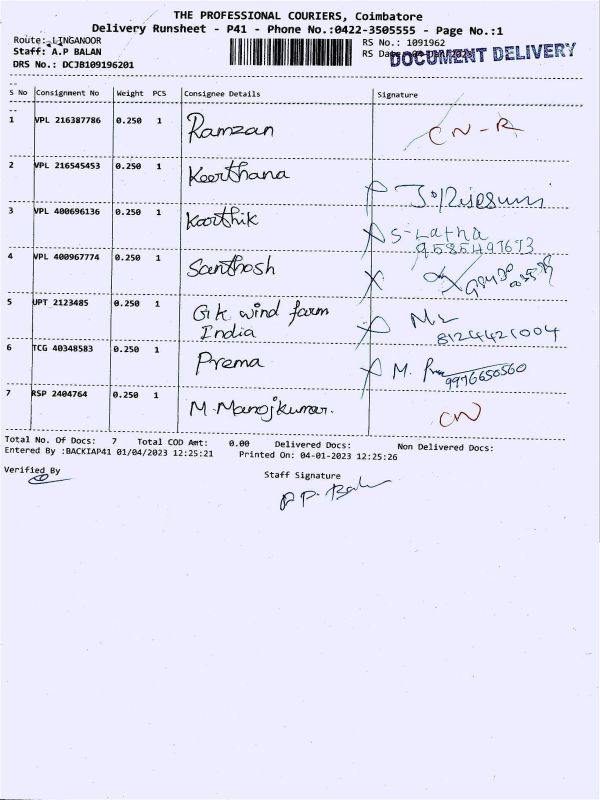 THE PROFESSIONAL COURIERS, Coimbatore
Delivery Runsheet - P41 - Phone No.:0422-3505555 - Page No.:1
Route: LINGANOOR
Staff: A.P BALAN
DRS No.: DCJB109196201
RS No.: 1091962
RS Date
DOCUMENT DELIVERY
S No Consignment No Weight PCS Consignee Details Signature
1 VPL 216387786 0.250 1 Ramzan CN-R
2 VPL 216545453 0.250 1 Keerthana
3 VPL 400696136 0.250 1 Karthik S-Latha
9585497673
4 VPL 400967774 0.250 1 Santhosh
5 UPT 2123485 0.250 1 GK wind farm
India
8124421004
6 TCG 40348583 0.250 1 Prema M.
9976650560
7 RSP 2404764 0.250 1 M.Manojkumar. CN
Total No. Of Docs: 7 Total COD Amt: 0.00 Delivered Docs: Non Delivered Docs:
Entered By :BACKIAP41 01/04/2023 12:25:21 Printed On: 04-01-2023 12:25:26
Verified By
Staff Signature
A P. Balan